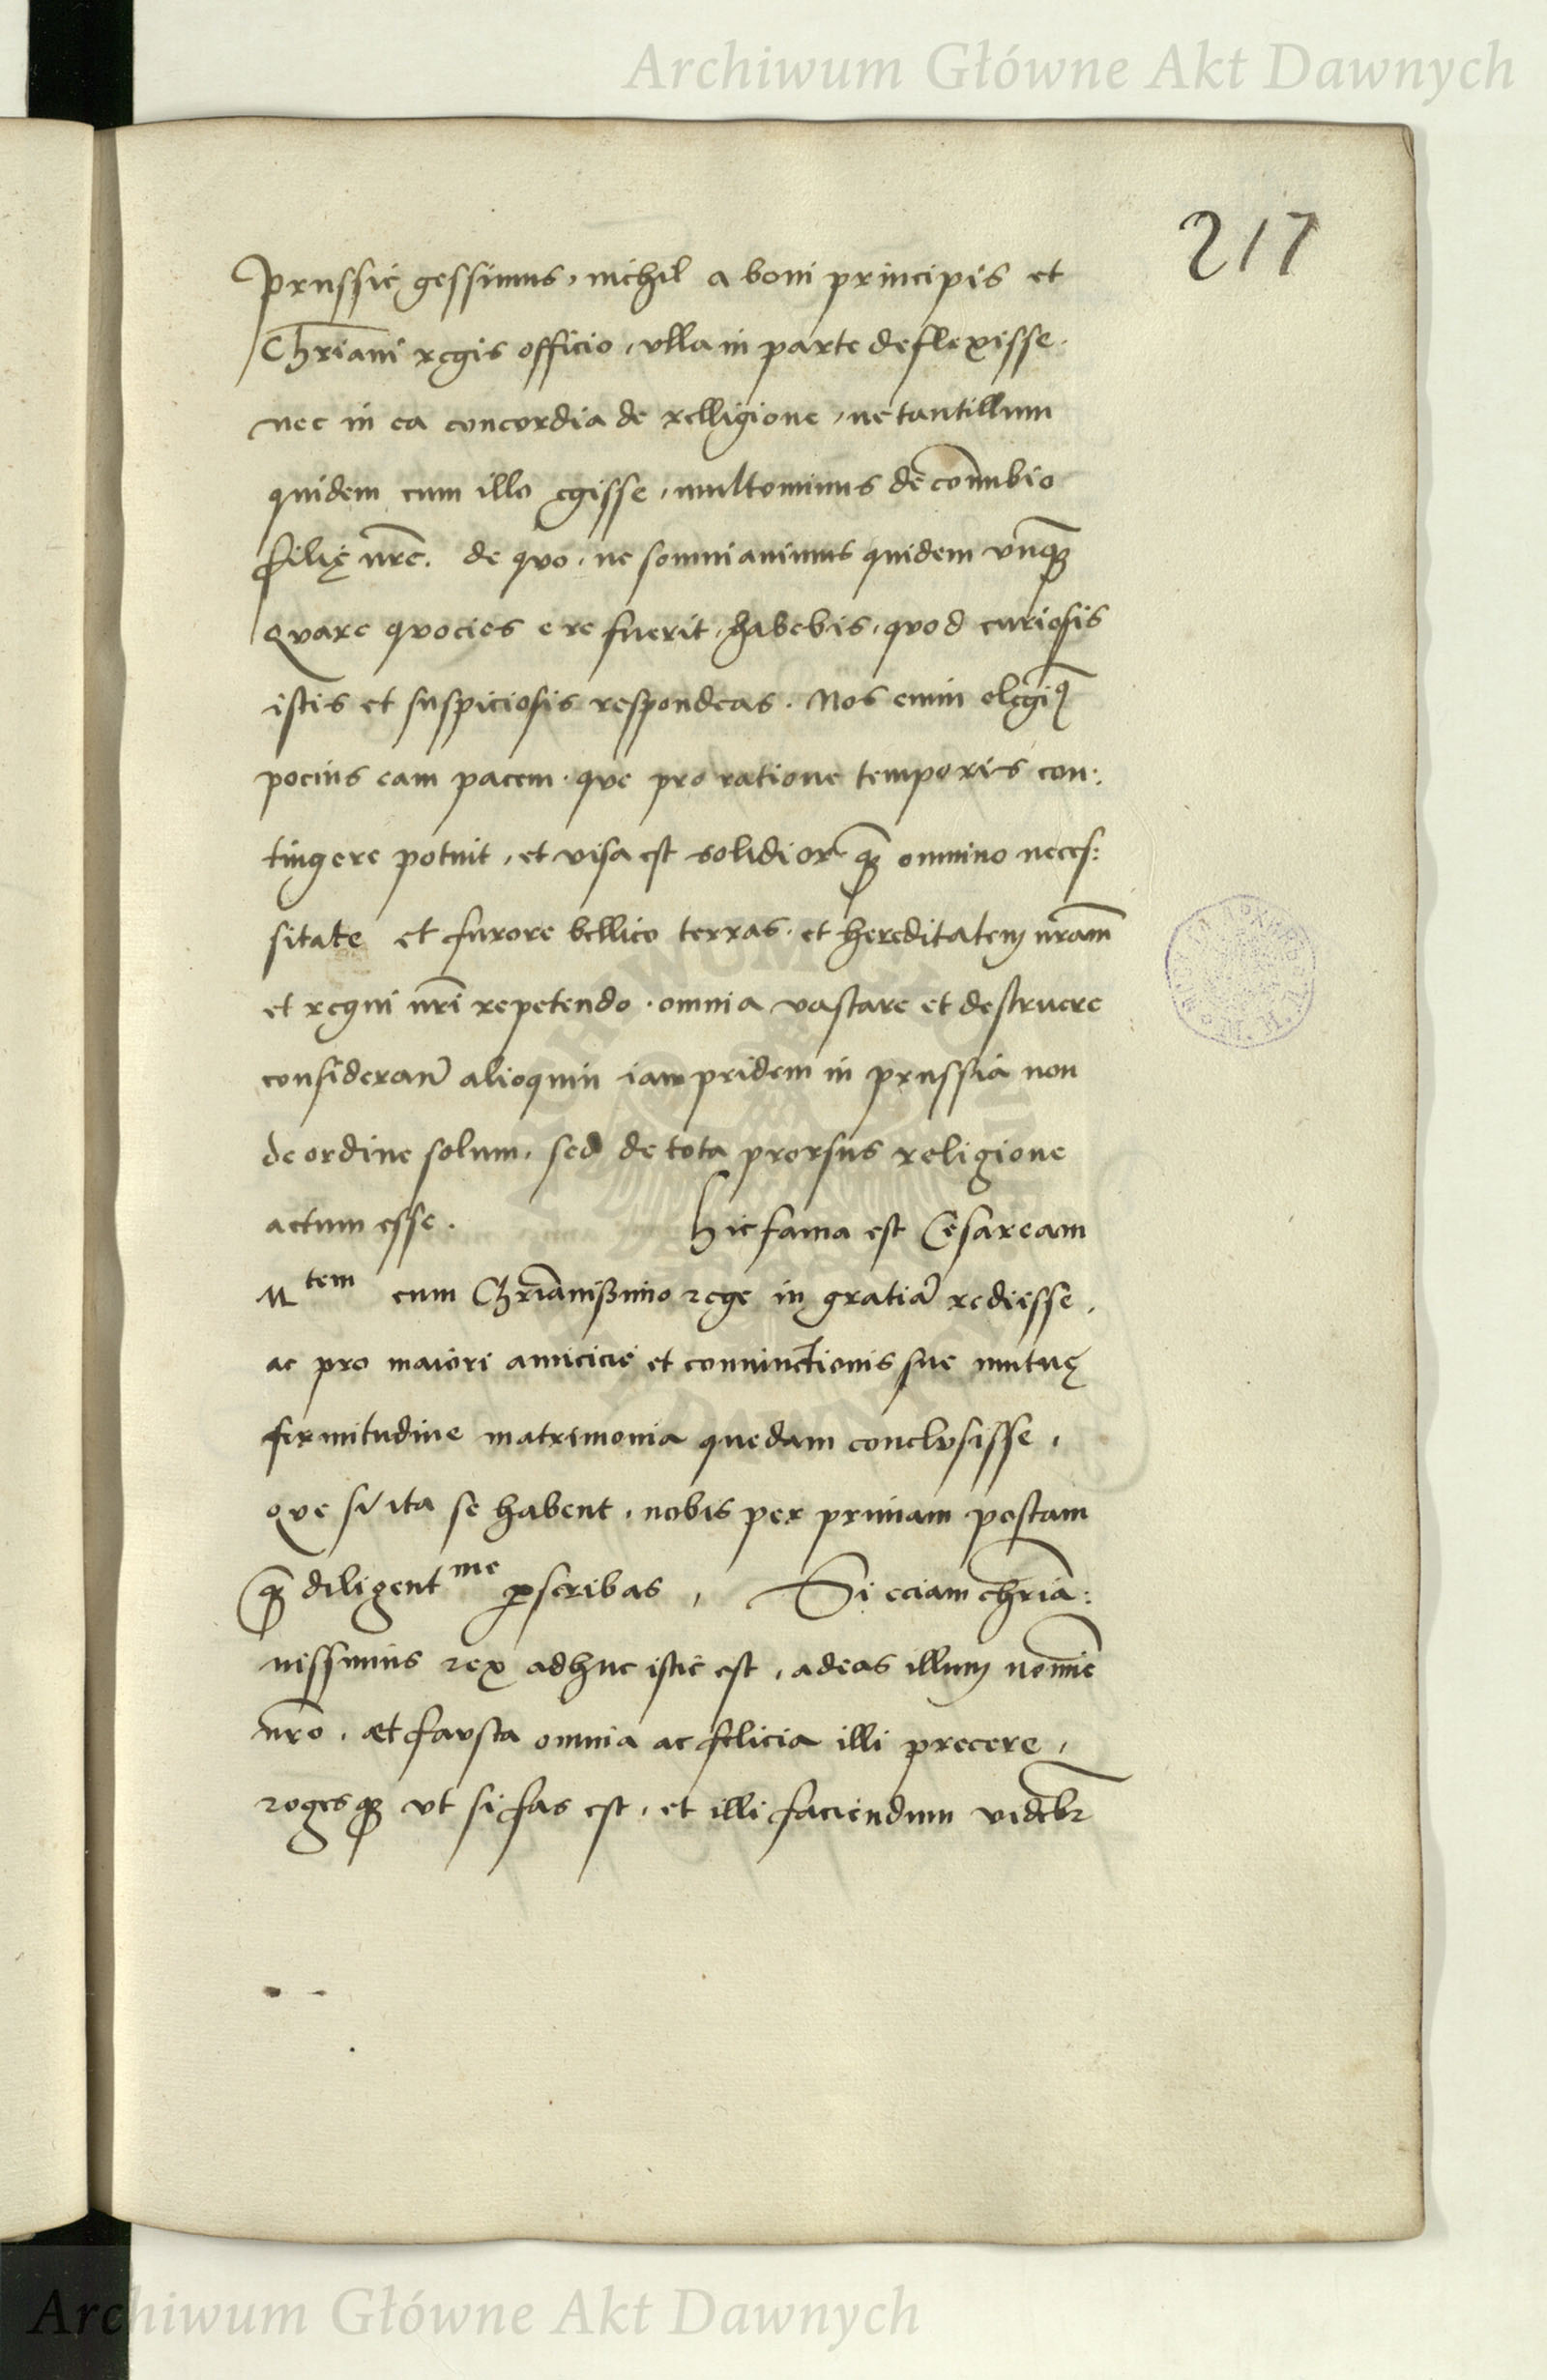 Archiwum Główne Akt Dawnych
217
Prussie gessimus, nichil a boni principis et
Chr̃iani regis officio, vlla in parte deflexisse.
nec in ea concordia de relligione, ne tantillum
quidem cum illo egisse, multominus de con̄ubio
filię nr̃e. de quo, ne somniauimus quidem vnq̃
Quare quocies e re fuerit, habebis, quod curiosis
istis et suspiciosis respondeas. Nos enim elegimꝰ
pocius eam pacem. que pro ratione temporis con:
tingere potuit, et visa est solidior q̃ omnino neces:
sitate et furore bellico terras. et hereditatem nr̃am
et regni nr̃i repetendo. omnia vastare et destruere
considerant̃ alioquin iam pridem in prussia non
de ordine solum, sed de tota prorsus religione
actum esse. Hic fama est Cesaream
Mtem cum Chr̃ianissimo rege in gratiã rediisse,
ac pro maiori amicicie et coniunctionis sue mutuę
firmitudine matrimonia quedam conclusisse,
que si ita se habent, nobis per primam postam
q̃ diligentme ꝑscribas, Si eciam chr̃ia:
nissimus rex adhuc istic est, adeas illum nomĩe
nr̃o, et fausta omnia ac felicia illi precere,
rogesqꝫ vt si fas est, et illi faciendum videbr̃
Archiwum Główne Akt Dawnych